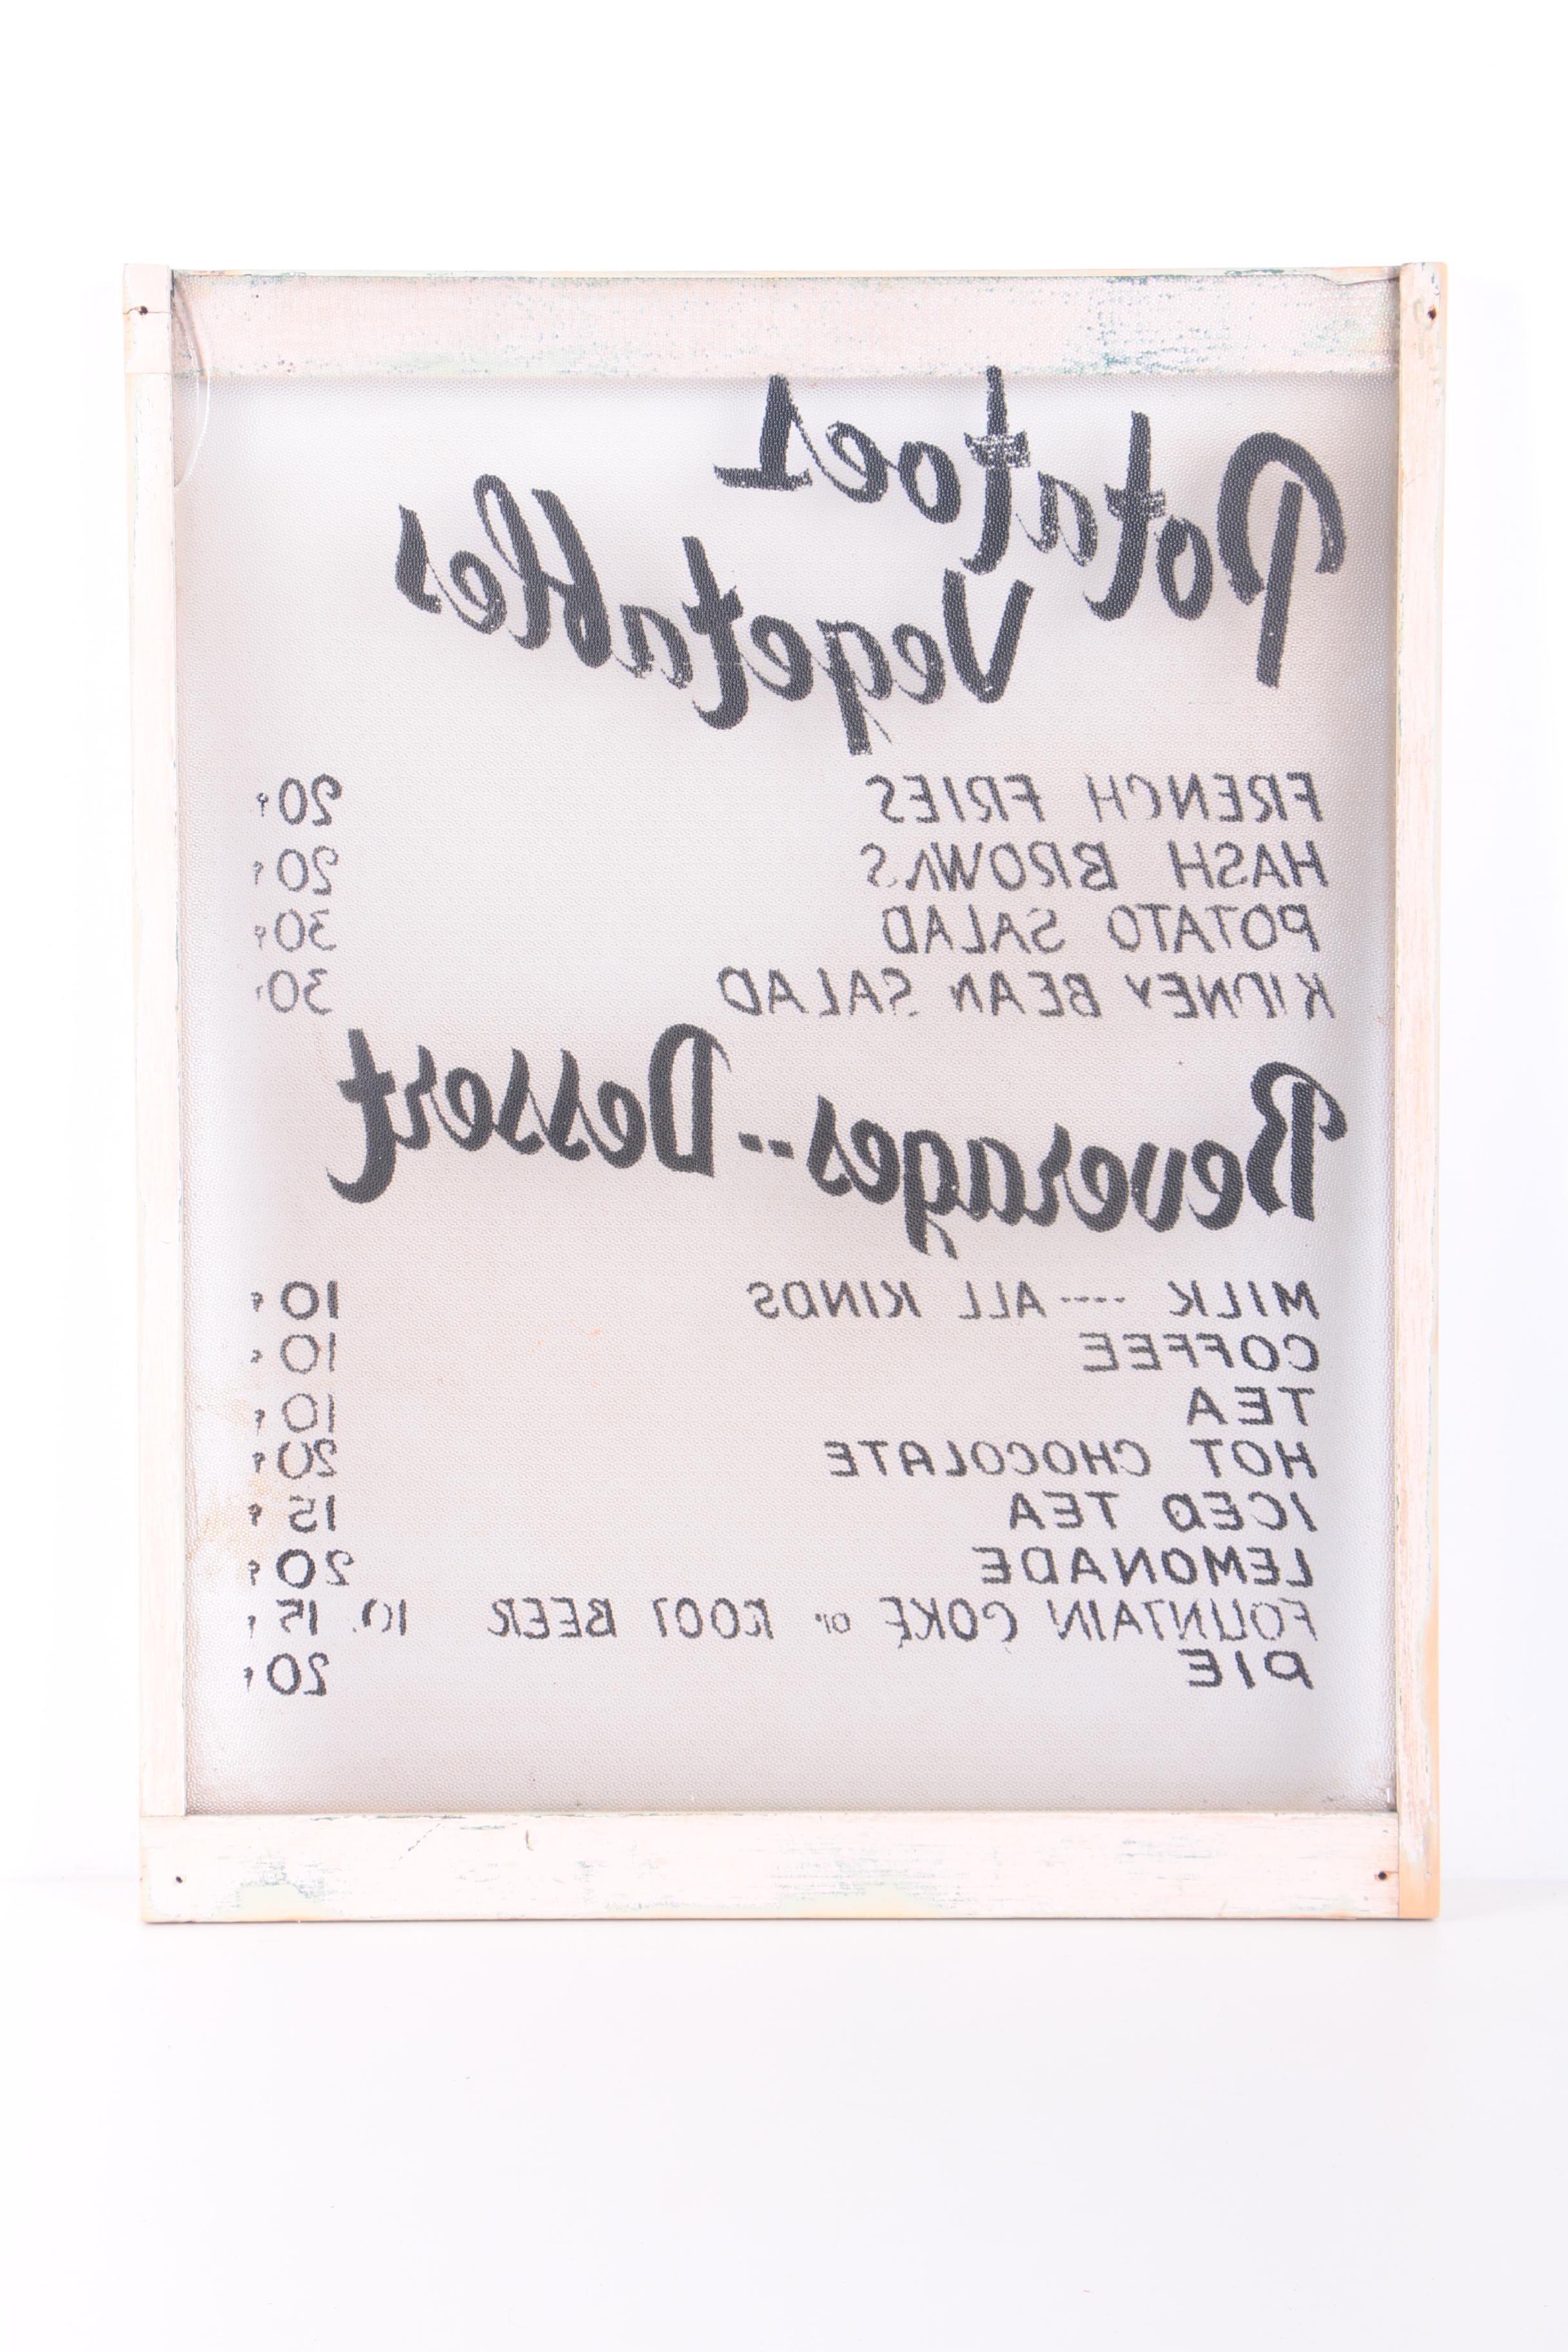 Potatoes
Vegetables
FRENCH FRIES 20¢
HASH BROWNS 20¢
POTATO SALAD 30¢
KIDNEY BEAN SALAD 30¢
Beverages -- Dessert
MILK ---- ALL KINDS 10¢
COFFEE 10¢
TEA 10¢
HOT CHOCOLATE 20¢
ICED TEA 15¢
LEMONADE 20¢
FOUNTAIN COKE or ROOT BEER 10. 15¢
PIE 20¢